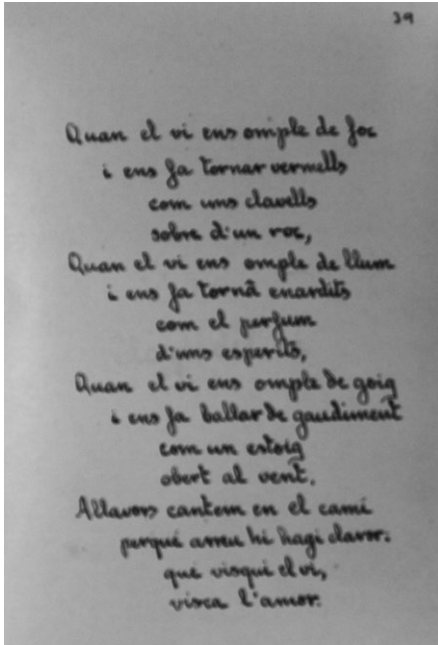 39
Quan el vi ens omple de foc
i ens fa tornar vermells
com uns clavells
sobre d'un roc,
Quan el vi ens omple de llum
i ens fa tornã enardits
com el perfum
d'uns esperits,
Quan el vi ens omple de goig
i ens fa ballar de gaudiment
com un estoig
obert al vent.
Allavors cantem en el camí
perqué arreu hi hagi claror:
qué visqui el vi,
visca l'amor.